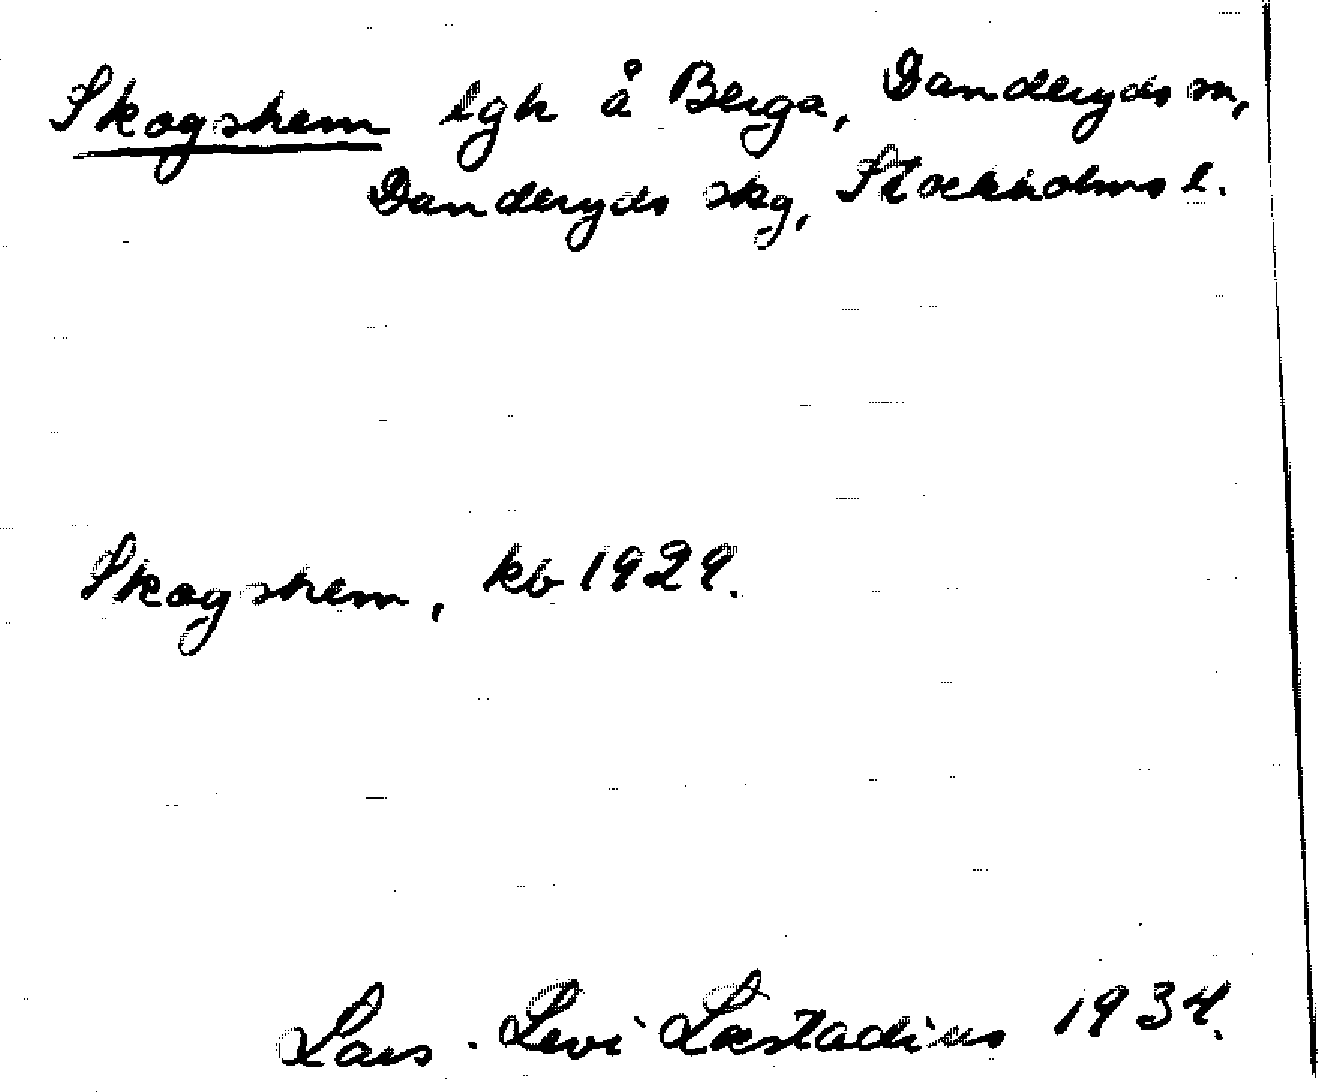 Skogshem lgh å Berga, Danderyds sn,
Danderyds skg, Stockholms l.
Skogshem, kb 1929.
Lars-Levi Læstadius 1934.